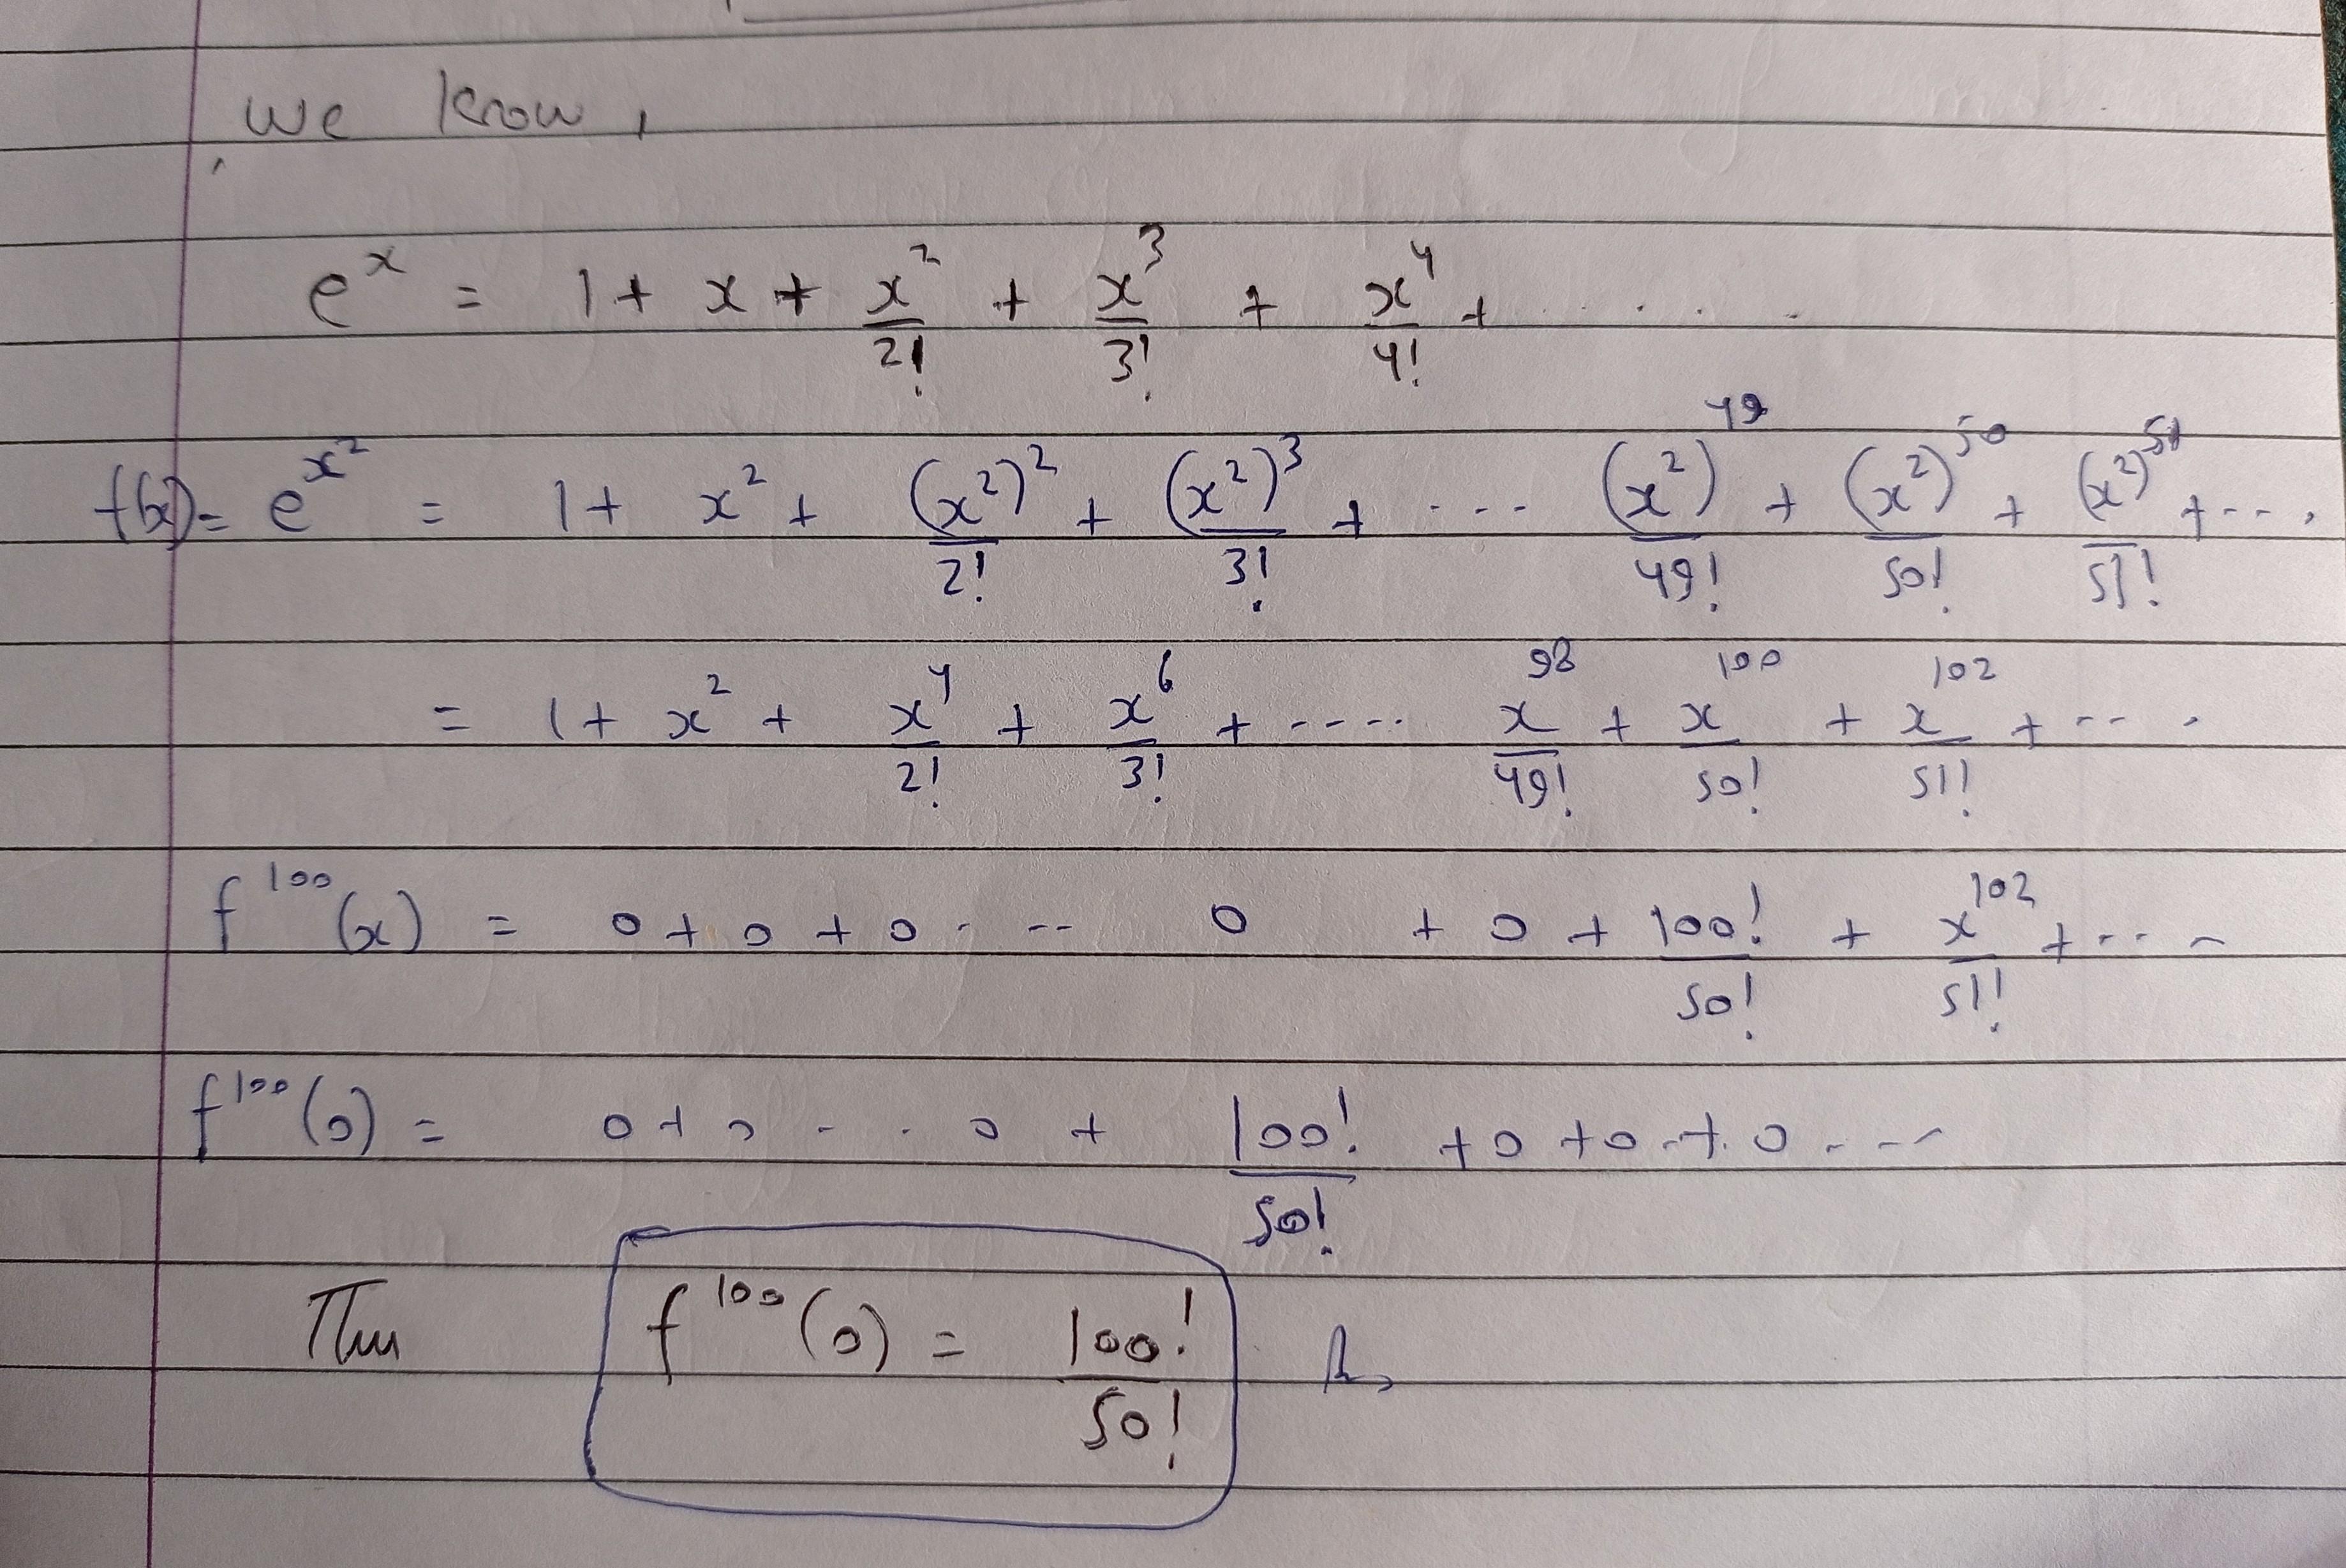 we know,
e^x = 1 + x + x^2/2! + x^3/3! + x^4/4! + .....
f(x) = e^{x^2} = 1 + x^2 + (x^2)^2/2! + (x^2)^3/3! + ... (x^2)^49/49! + (x^2)^50/50! + (x^2)^51/51! + ....
= 1 + x^2 + x^4/2! + x^6/3! + .... x^98/49! + x^100/50! + x^102/51! + ....
f^100(x) = 0 + 0 + 0 .... 0 + 0 + 100!/50! + x^102/51! + ....
f^100(0) = 0 + 0 ... 0 + 100!/50! + 0 + 0 + 0 ....
Thus f^100(0) = 100!/50!